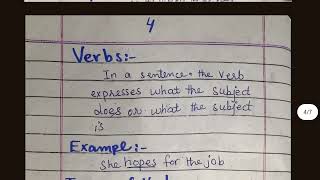 4
Verbs:-
In a sentence the verb
expresses what the subject
does or what the subject
is
Example:-
she hopes for the job
4/7